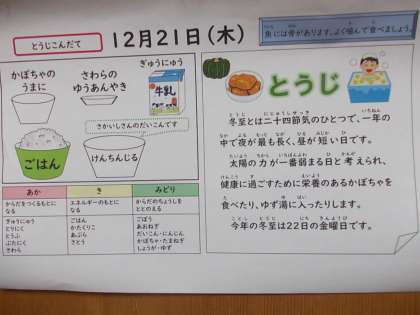 とうじこんだて
12月21日(木)
魚には骨があります。よく噛んで食べましょう。
かぼちゃの
うまに
さわらの
ゆうあんやき
ぎゅうにゅう
牛乳
さかいしさんのだいこんです
ごはん
けんちんじる
とうじ
冬至とは二十四節気のひとつで、一年の
中で夜が最も長く、昼が短い日です。
太陽の力が一番弱まる日と考えられ、
健康に過ごすために栄養のあるかぼちゃを
食べたり、ゆず湯に入ったりします。
今年の冬至は22日の金曜日です。
あか
き
みどり
からだをつくるもとに
なる
エネルギーのもとに
なる
からだのちょうしを
ととのえる
ぎゅうにゅう
とりにく
とうふ
ぶたにく
さわら
ごはん
かたくりこ
あぶら
さとう
ごぼう
あおねぎ
だいこん・にんじん
かぼちゃ・たまねぎ
しょうが・ゆず